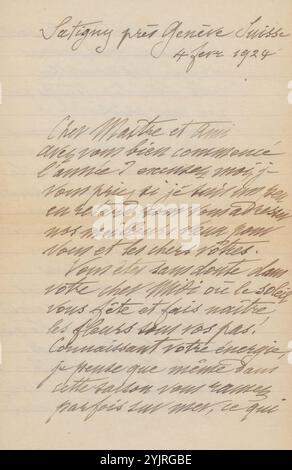 Satigny près Genève Suisse
4 fevr 1924
Cher Maître et Ami
avez vous bien commencé
l'année ? excusez moi, je
vous prie, si je suis un peu
en retard pour vous adresser
nos meilleurs vœux pour
vous et les chers vôtres.
Vous êtes sans doute dans
votre cher Midi où le soleil
vous fête et fais naître
les fleurs sous vos pas.
Connaissant votre énergie
je pense que même dans
cette saison vous ramez
parfois sur mer, ce qui
alamy
Image ID: 2YJRGBE
www.alamy.com